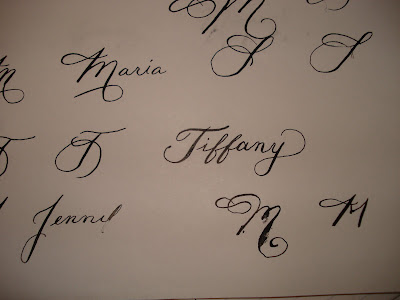 M
S S
M Maria
T T Tiffany
Jennil M M